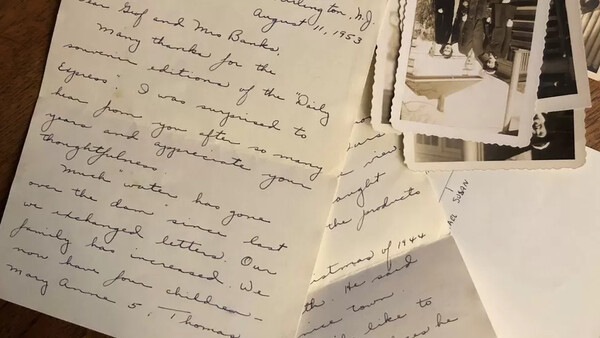 lington, N.J.
August 11, 1953
ear and Mrs Banks,
Many thanks for the
souvenir editions of the "Daily
Express". I was surprised to
hear from you after so many
years and appreciate your
thoughtfulness.
Much "water has gone
over the dam" since last
we exchanged letters. Our
family has increased. We
now have four children –
Mary Anne 5, Thomas
ought
the products
istmas of 1944
th. He said
nice town.
like to
he
AR SUSAN